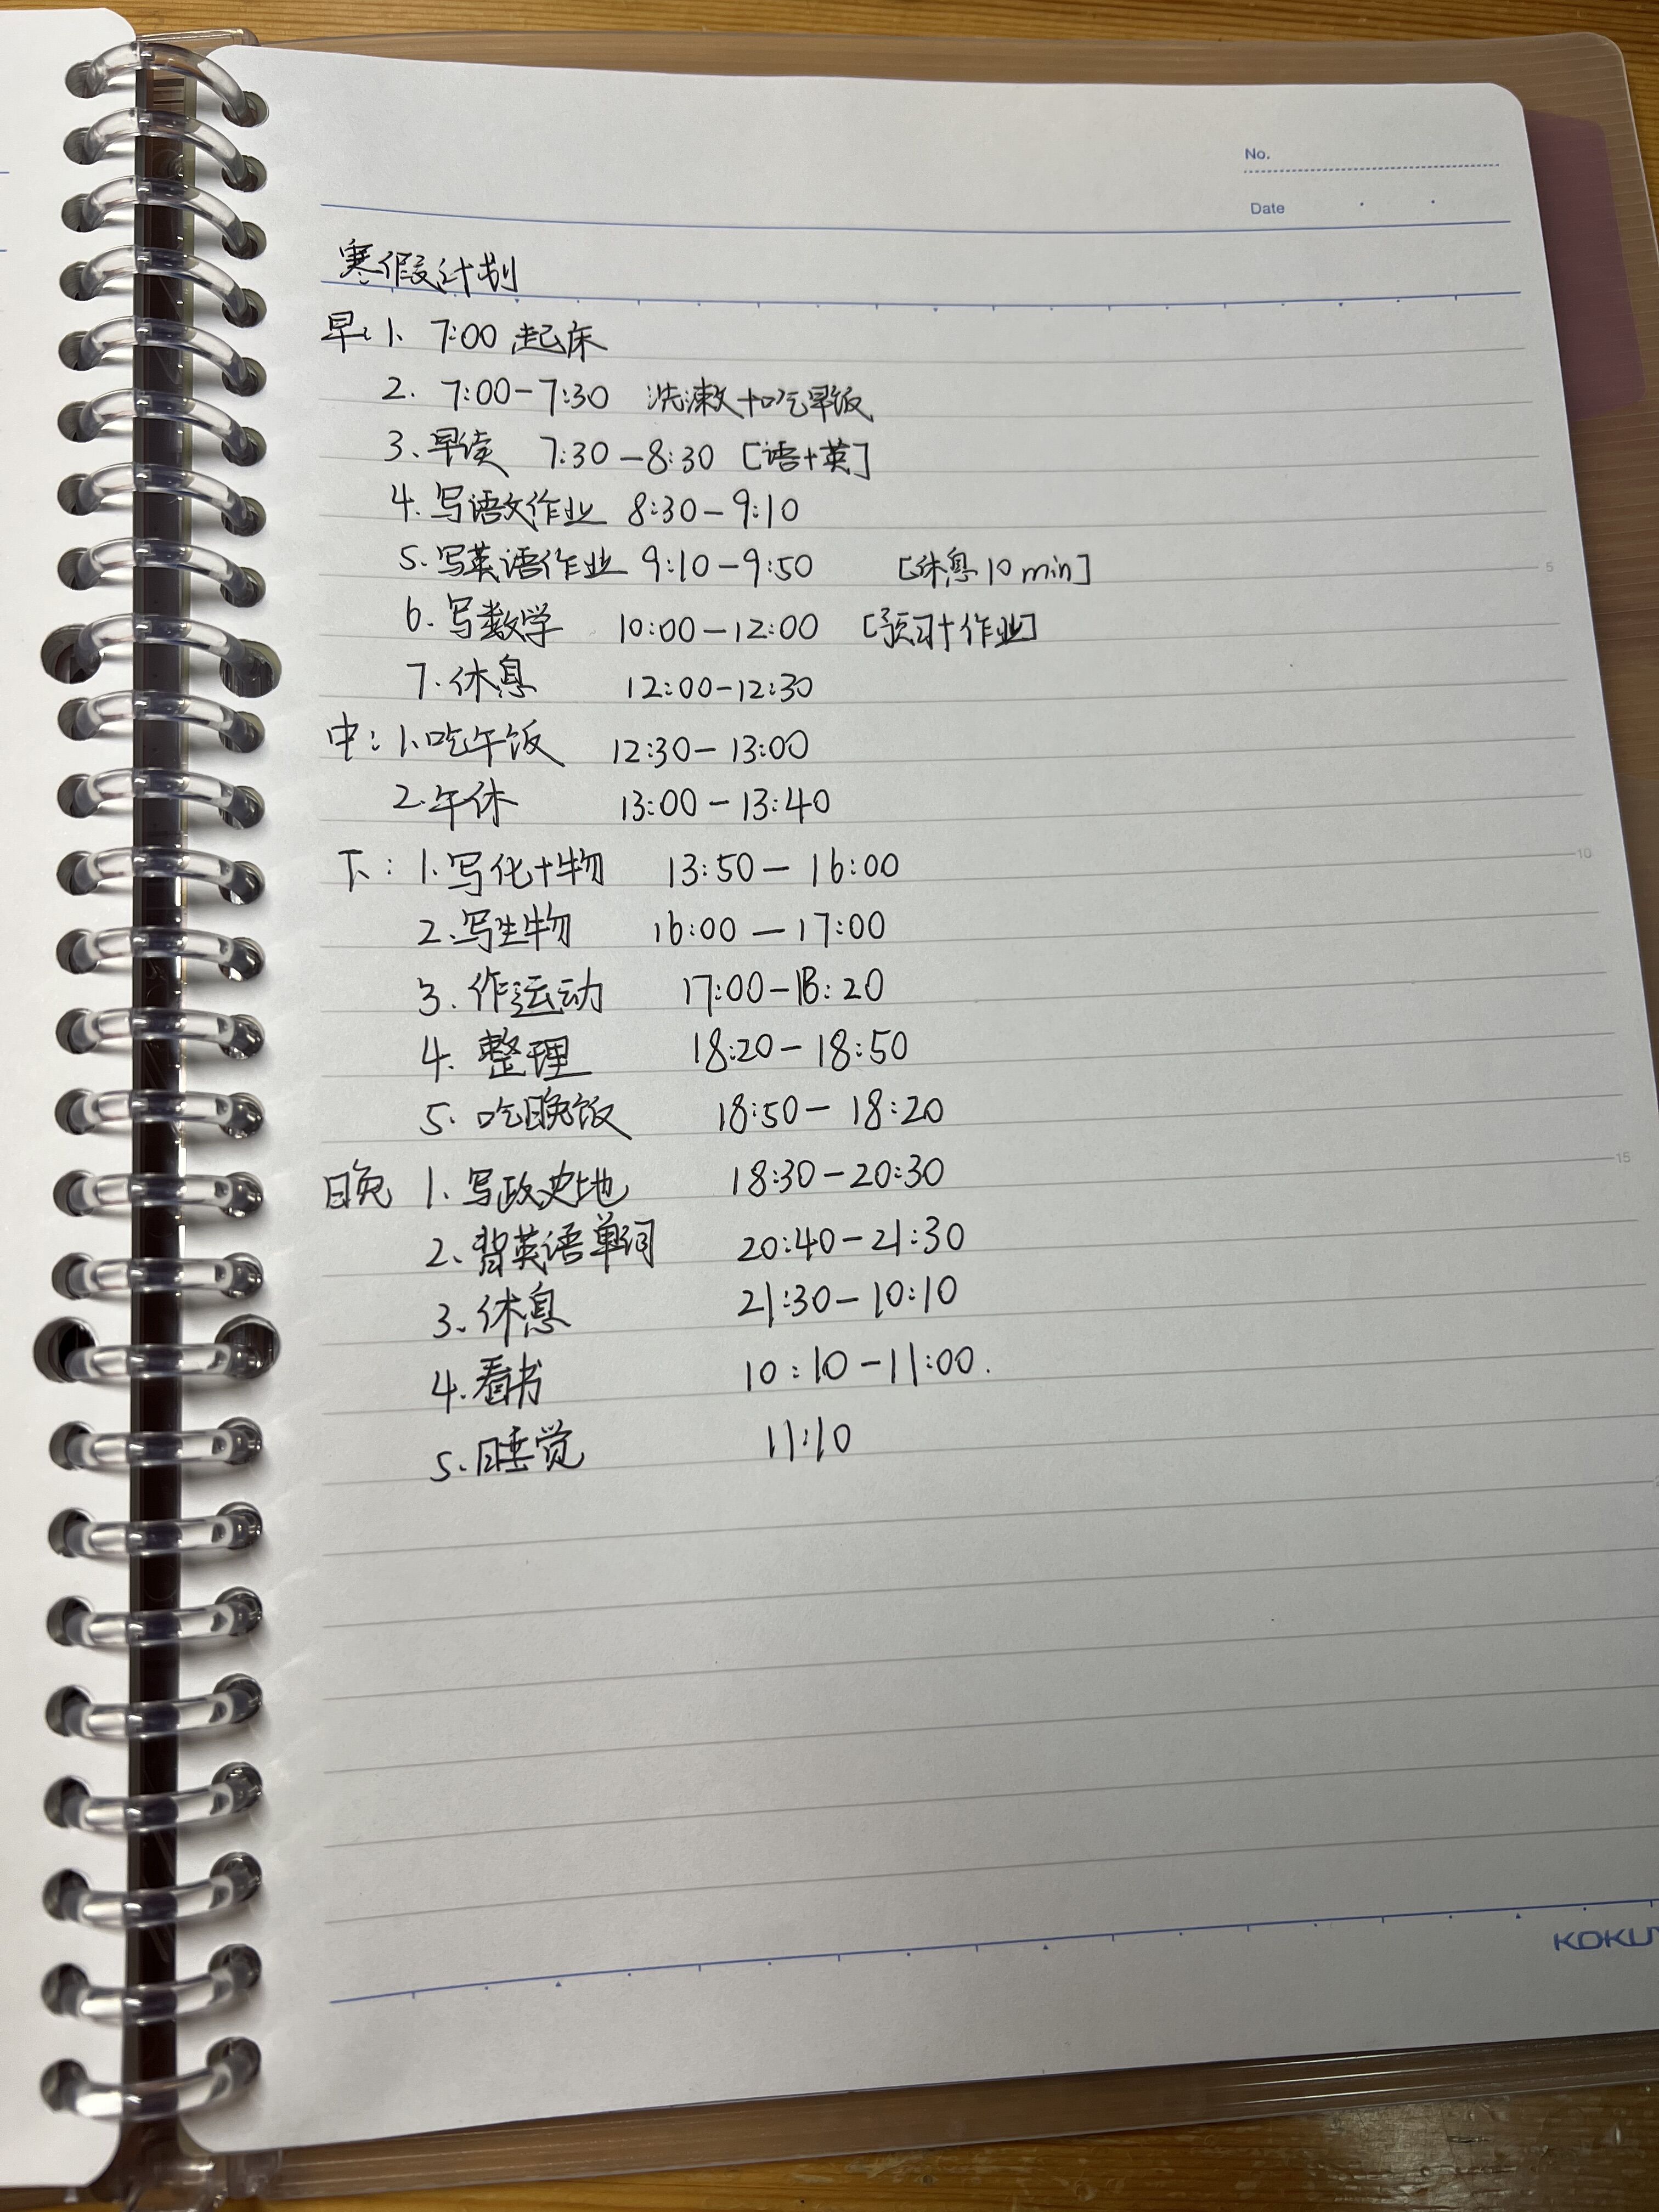 No.
Date
寒假计划
早:1、7:00 起床
2. 7:00-7:30 洗漱+吃早饭
3、早读 7:30-8:30 [语+英]
4.写语文作业 8:30-9:10
5.写英语作业 9:10-9:50 [休息10min]
5
6.写数学 10:00-12:00 [预习+作业]
7.休息 12:00-12:30
中:1、吃午饭 12:30-13:00
2.午休 13:00-13:40
下:1.写化+物 13:50-16:00
10
2.写生物 16:00-17:00
3.作运动 17:00-18:20
4.整理 18:20-18:50
5.吃晚饭 18:50-18:20
晚 1、写政史地 18:30-20:30
15
2、背英语单词 20:40-21:30
3、休息 21:30-10:10
4.看书 10:10-11:00.
5、睡觉 11:10